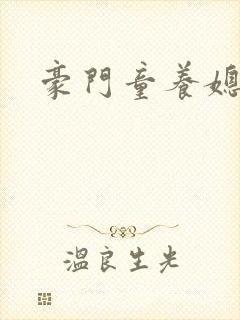 豪門童養媳
溫良生光